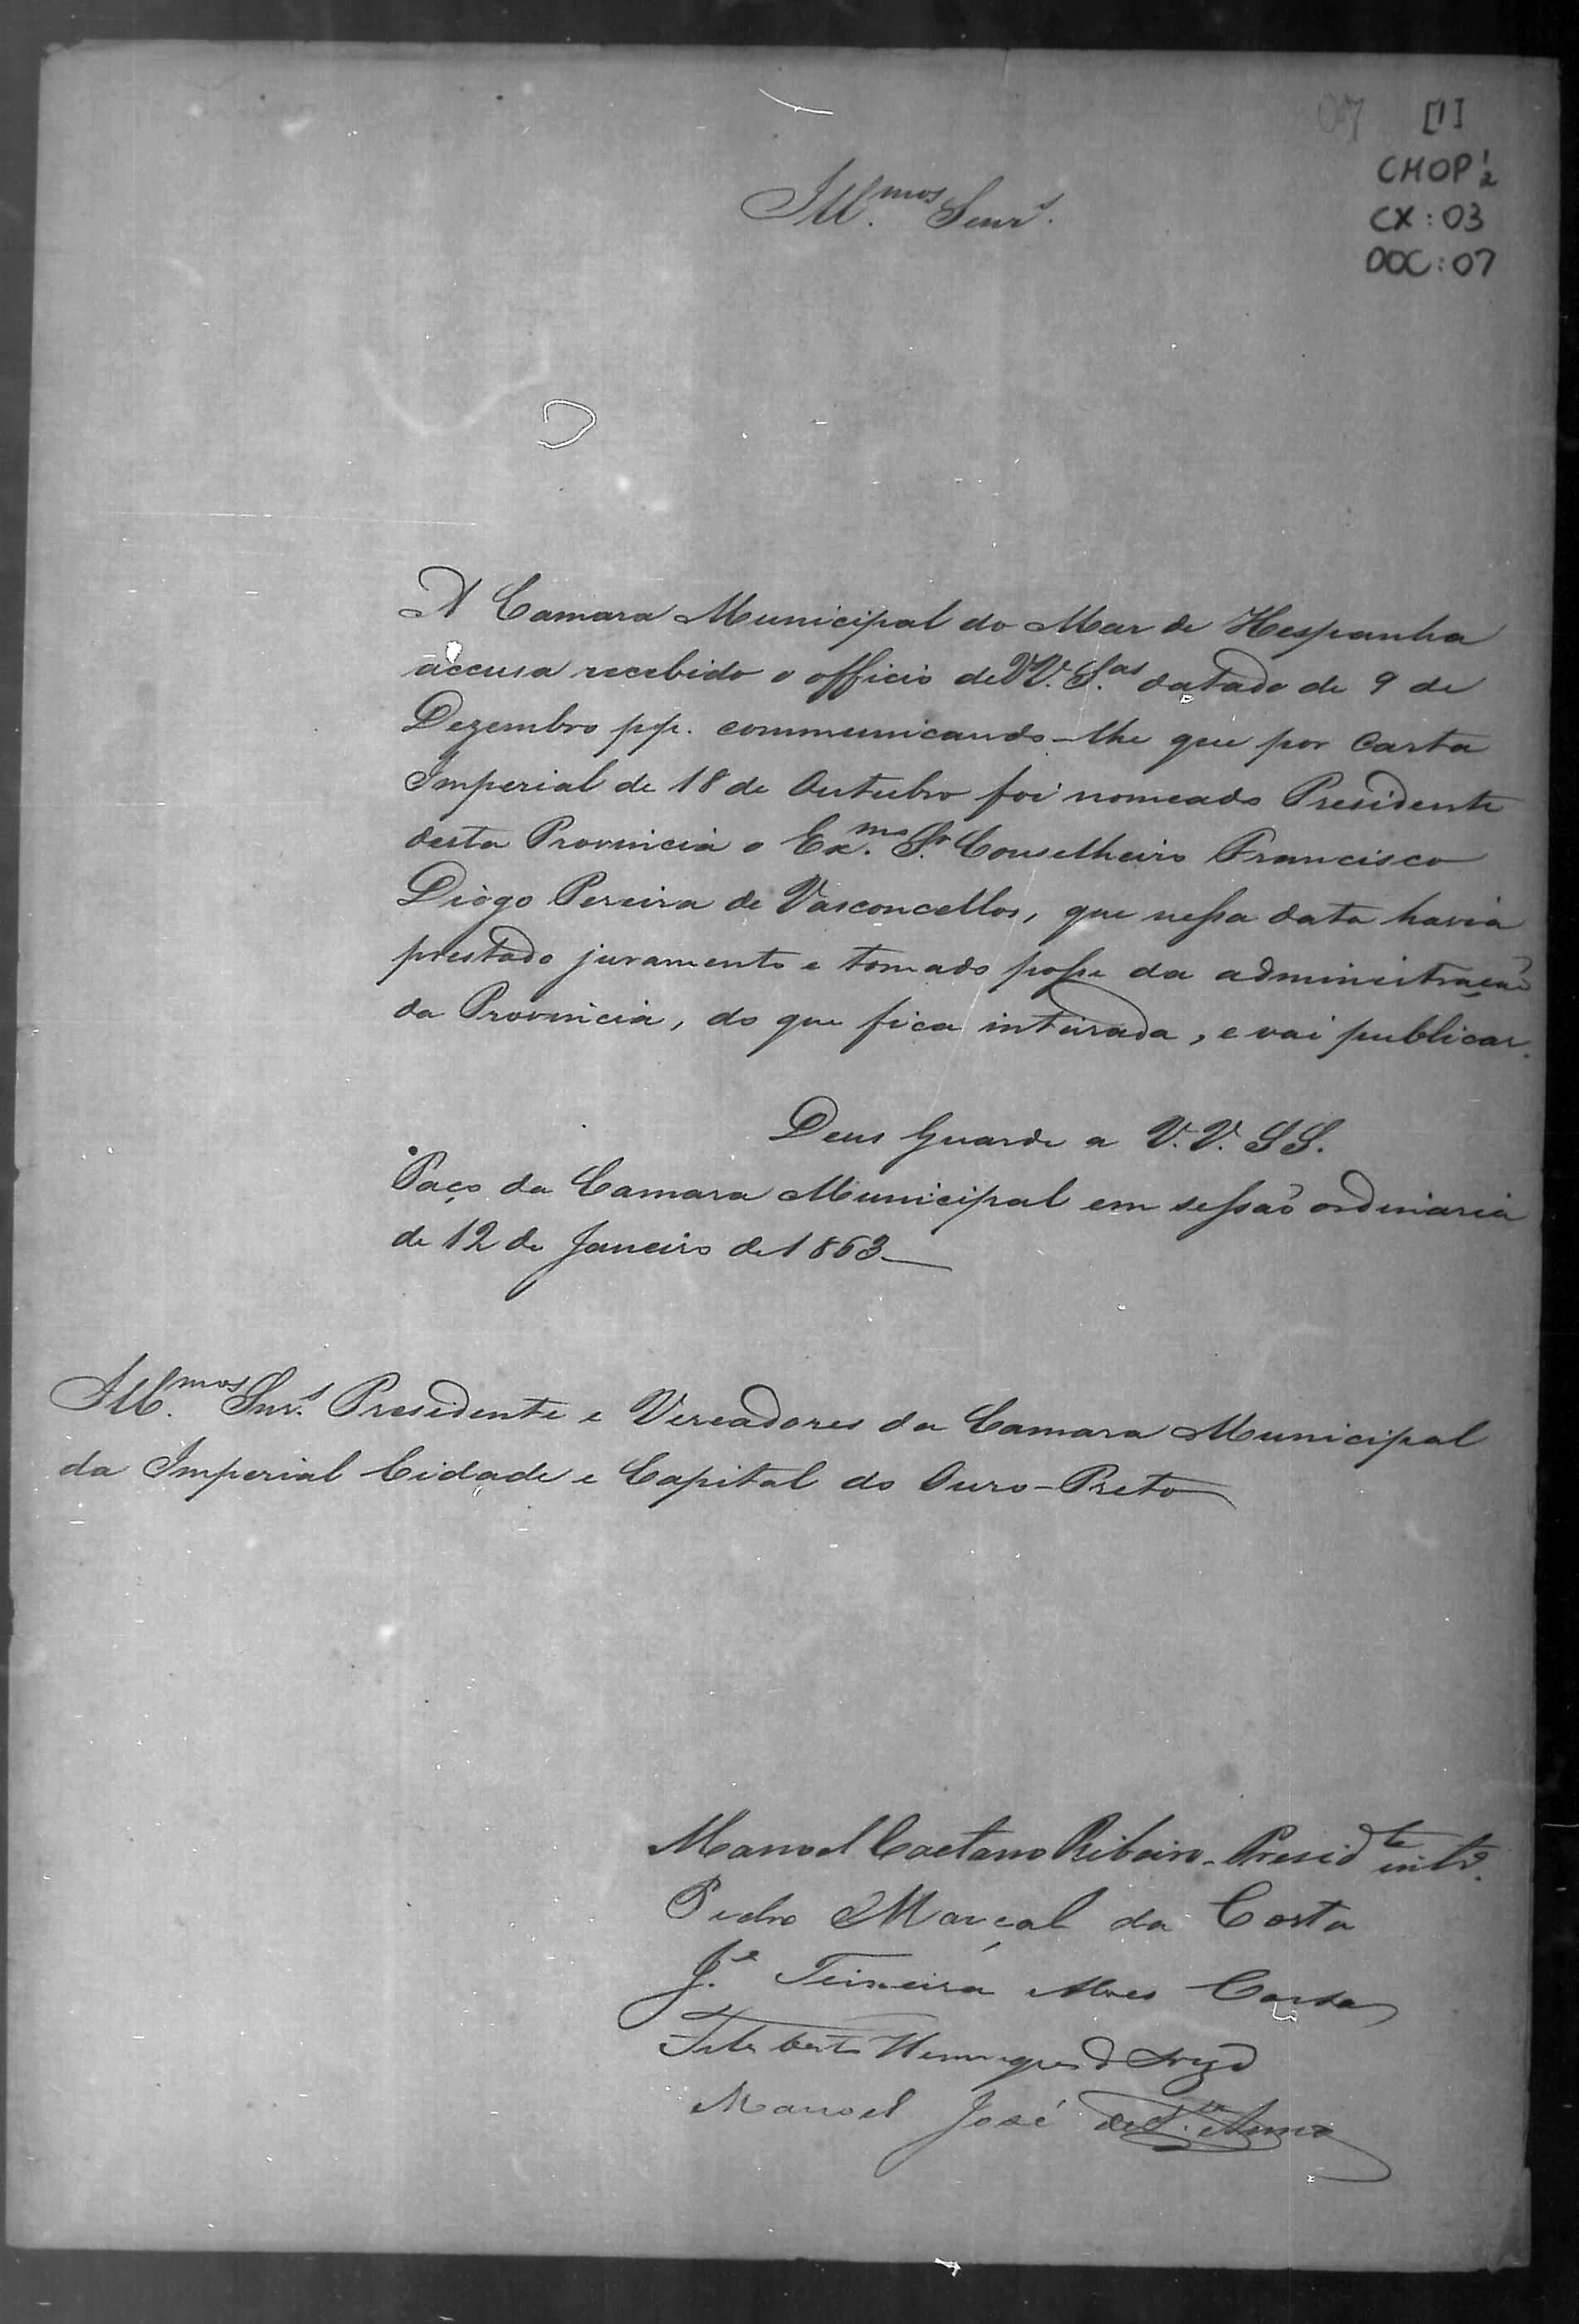 07 [1]
CMOP 1/2
CX: 03
DOC: 07
Ill.mos Senr.s
A Camara Municipal do Mar de Hespanha
accusa recebido o officio de VV. S.as datado de 9 de
Dezembro pp. communicando-lhe que por Carta
Imperial de 18 de Outubro foi nomeado Presidente
desta Provincia o Ex.mo S.r Conselheiro Francisco
Diogo Pereira de Vasconcellos, que nessa data havia
prestado juramento e tomado posse da administração
da Provincia, do que fica inteirada, e vai publicar.
Deus Guarde a V.V. SS.
Paço da Camara Municipal em sessão ordinaria
de 12 de Janeiro de 1863
Ill.mos Snr.s Presidente e Vereadores da Camara Municipal
da Imperial Cidade e Capital do Ouro-Preto
Manoel Caetano Ribeiro - Presid.te
Pedro Marçal da Costa
J.e Teixeira Alves
Henriques d
Manoel José de S.ta Anna